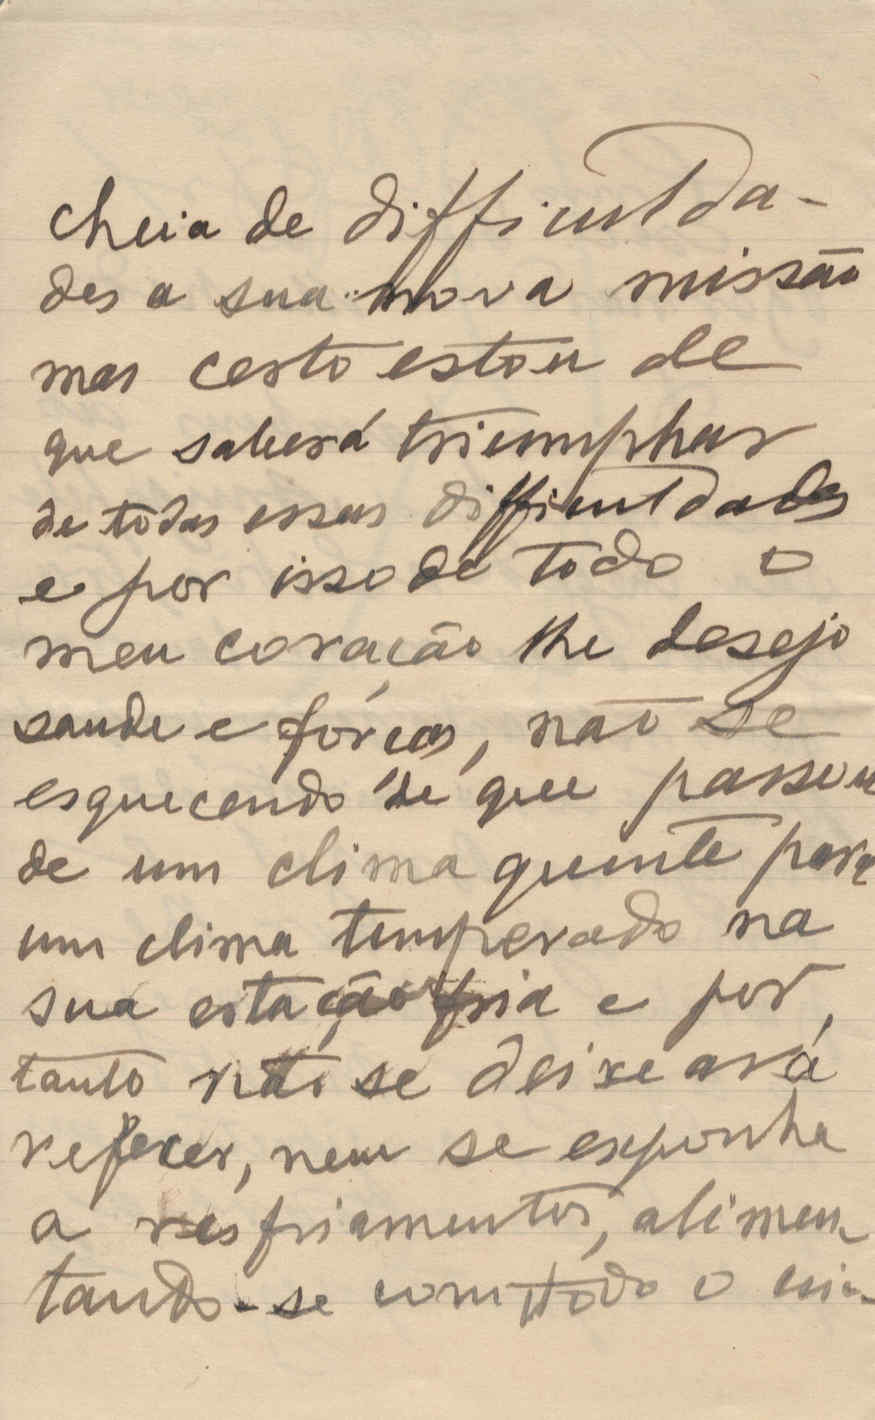 cheia de difficulda-
des a sua nova missão
mas certo estou de
que saberá triumphar
de todas essas difficuldades
e por isso de todo o
meu coração lhe desejo
saude e forças, não se
esquecendo de que passou
de um clima quente para
um clima temperado na
sua estação fria e por
tanto não se deixe ar
refecer, nem se exponha
a resfriamentos, alimen
tando-se com todo o